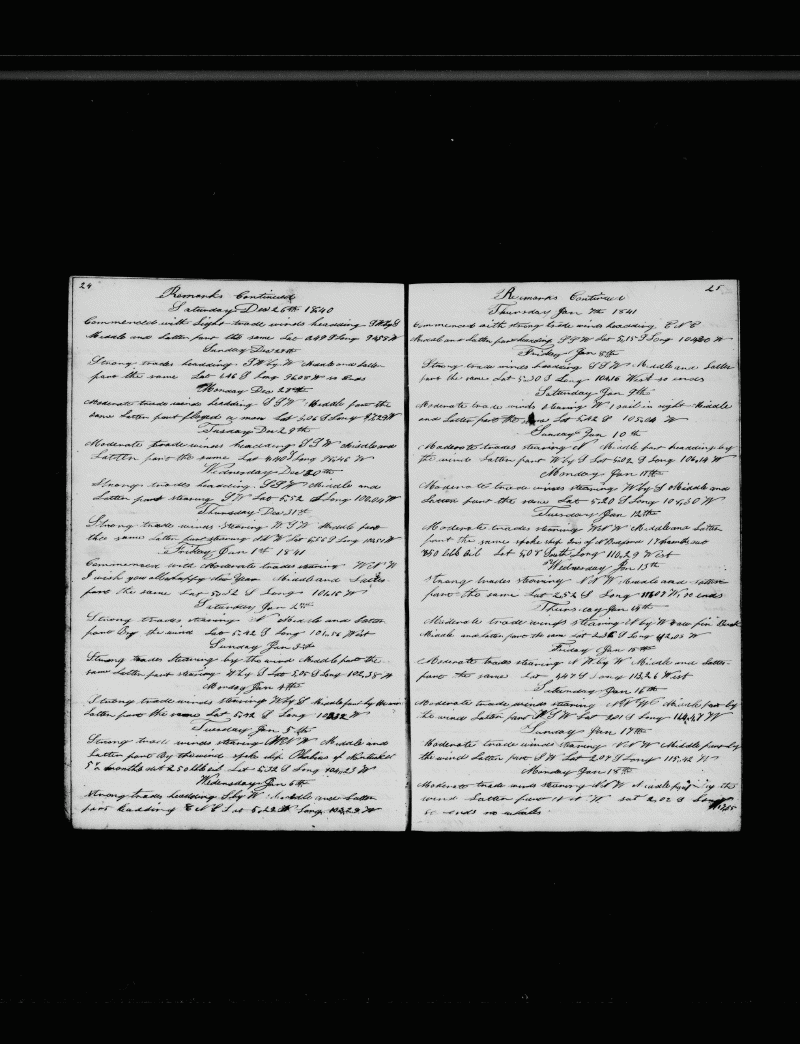 24
Remarks Continued
Saturday Dec 26th 1840
Commenced with Light trade winds heading SW by S
Middle and Latter part the same Lat 2,49 S Long 94,58 W
Sunday Dec 27th
Strong trades heading SW by W Middle and Latter
part the same Lat 1,46 S Long 96,08 W so Ends
Monday Dec 28th
Moderate trade winds heading SSW Middle part the
same Latter part floged a man Lat 3,06 S Long
Tuesday Dec 29th
Moderate trade winds heading SSW Middle and
Latter part the same Lat 4,40 S Long 98,46 W
Wednesday Dec 30th
Strong trades heading SSW Middle and
Latter part stearing SW Lat 5,52 S Long 100,04 W
Thursday Dec 31st
Strong trade winds stearing WSW Middle part
the same Latter part stearing Lat 6,56 S Long
Friday Jan 1st 1841
Commenced with Moderate trades stearing WNW
I wish you all a happy New Year Middle and Latter
part the same Lat 5,52 S Long 101,15 W
Saturday Jan 2nd
Strong trades stearing N Middle and Latter
part By the wind Lat 5,42 S Long 101,56 West
Sunday Jan 3rd
Strong trades Stearing by the wind Middle part the
same Latter part stearing W by S Lat 5,05 S Long 102,38 W
Monday Jan 4th
Strong trade winds stearing W by S Middle part by the wind
Latter part the same Lat 5,42 S Long W
Tuesday Jan 5th
Strong trade winds stearing WNW Middle and
Latter part By the wind spoke ship Phebus of Nantucket
5 1/2 months out 250 bbls oil Lat 5,32 S Long 104,25 W
Wednesday Jan 6th
Strong trades heading S by W Middle and Latter
part heading ENE Lat 5,22 S Long 104,29 W
25
Remarks Continued
Thursday Jan 7th 1841
Commenced with strong trade winds heading ENE
Middle and Latter part heading SSW Lat 5,15 S Long 104,20 W
Friday Jan 8th
Strong trade winds heading SSW Middle and Latter
part the same Lat 5,30 S Long 104,16 West so ends
Saturday Jan 9th
Moderate trade winds stearing W 1 sail in sight Middle
and Latter part the same Lat 5,42 S 105,04 W
Sunday Jan 10th
Moderate trades stearing W Middle part heading by
the wind Latter part W by S Lat 5,02 S Long 106,14 W
Monday Jan 11th
Moderate trade winds stearing W by S Middle and
Latter part the same Lat 5,20 S Long 108,30 W
Tuesday Jan 12th
Moderate trades stearing WNW Middle and Latter
part the same spoke ship of N Bedford 17 months out
850 bbls oil Lat 5,08 South Long 110,29 West
Wednesday Jan 13th
Strong trades stearing NNW Middle and Latter
part the same Lat 2,52 S Long W so ends
Thursday Jan 14th
Moderate trade winds stearing W by N saw fin Back
Middle and Latter part the same Lat 2,36 S Long 112,03 W
Friday Jan 15th
Moderate trades stearing N W by W Middle and Latter
part the same Lat 1,47 S Long 113,26 West
Saturday Jan 16th
Moderate trade winds stearing Middle part by
the wind Latter part WSW Lat 2,01 S Long 114,47 W
Sunday Jan 17th
Moderate trade winds stearing WNW Middle part by
the wind Latter part SW Lat 2,07 S Long 115,42 W
Monday Jan 18th
Moderate trade winds stearing NW Middle part by the
wind Latter part W Lat 2,02 S Long
so ends no whales